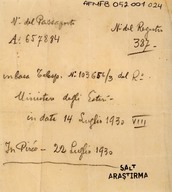 AFMFB 052 001 024
N.° del Passaporto
N.° del Registro
A: 657884
387.
in base Telesp. N.° 103656/3 del R.°
Ministero degli Esteri
in data 14 Luglio 1930 VIII
In Pireo - 22 Luglio 1930
SALT
ARAŞTIRMA